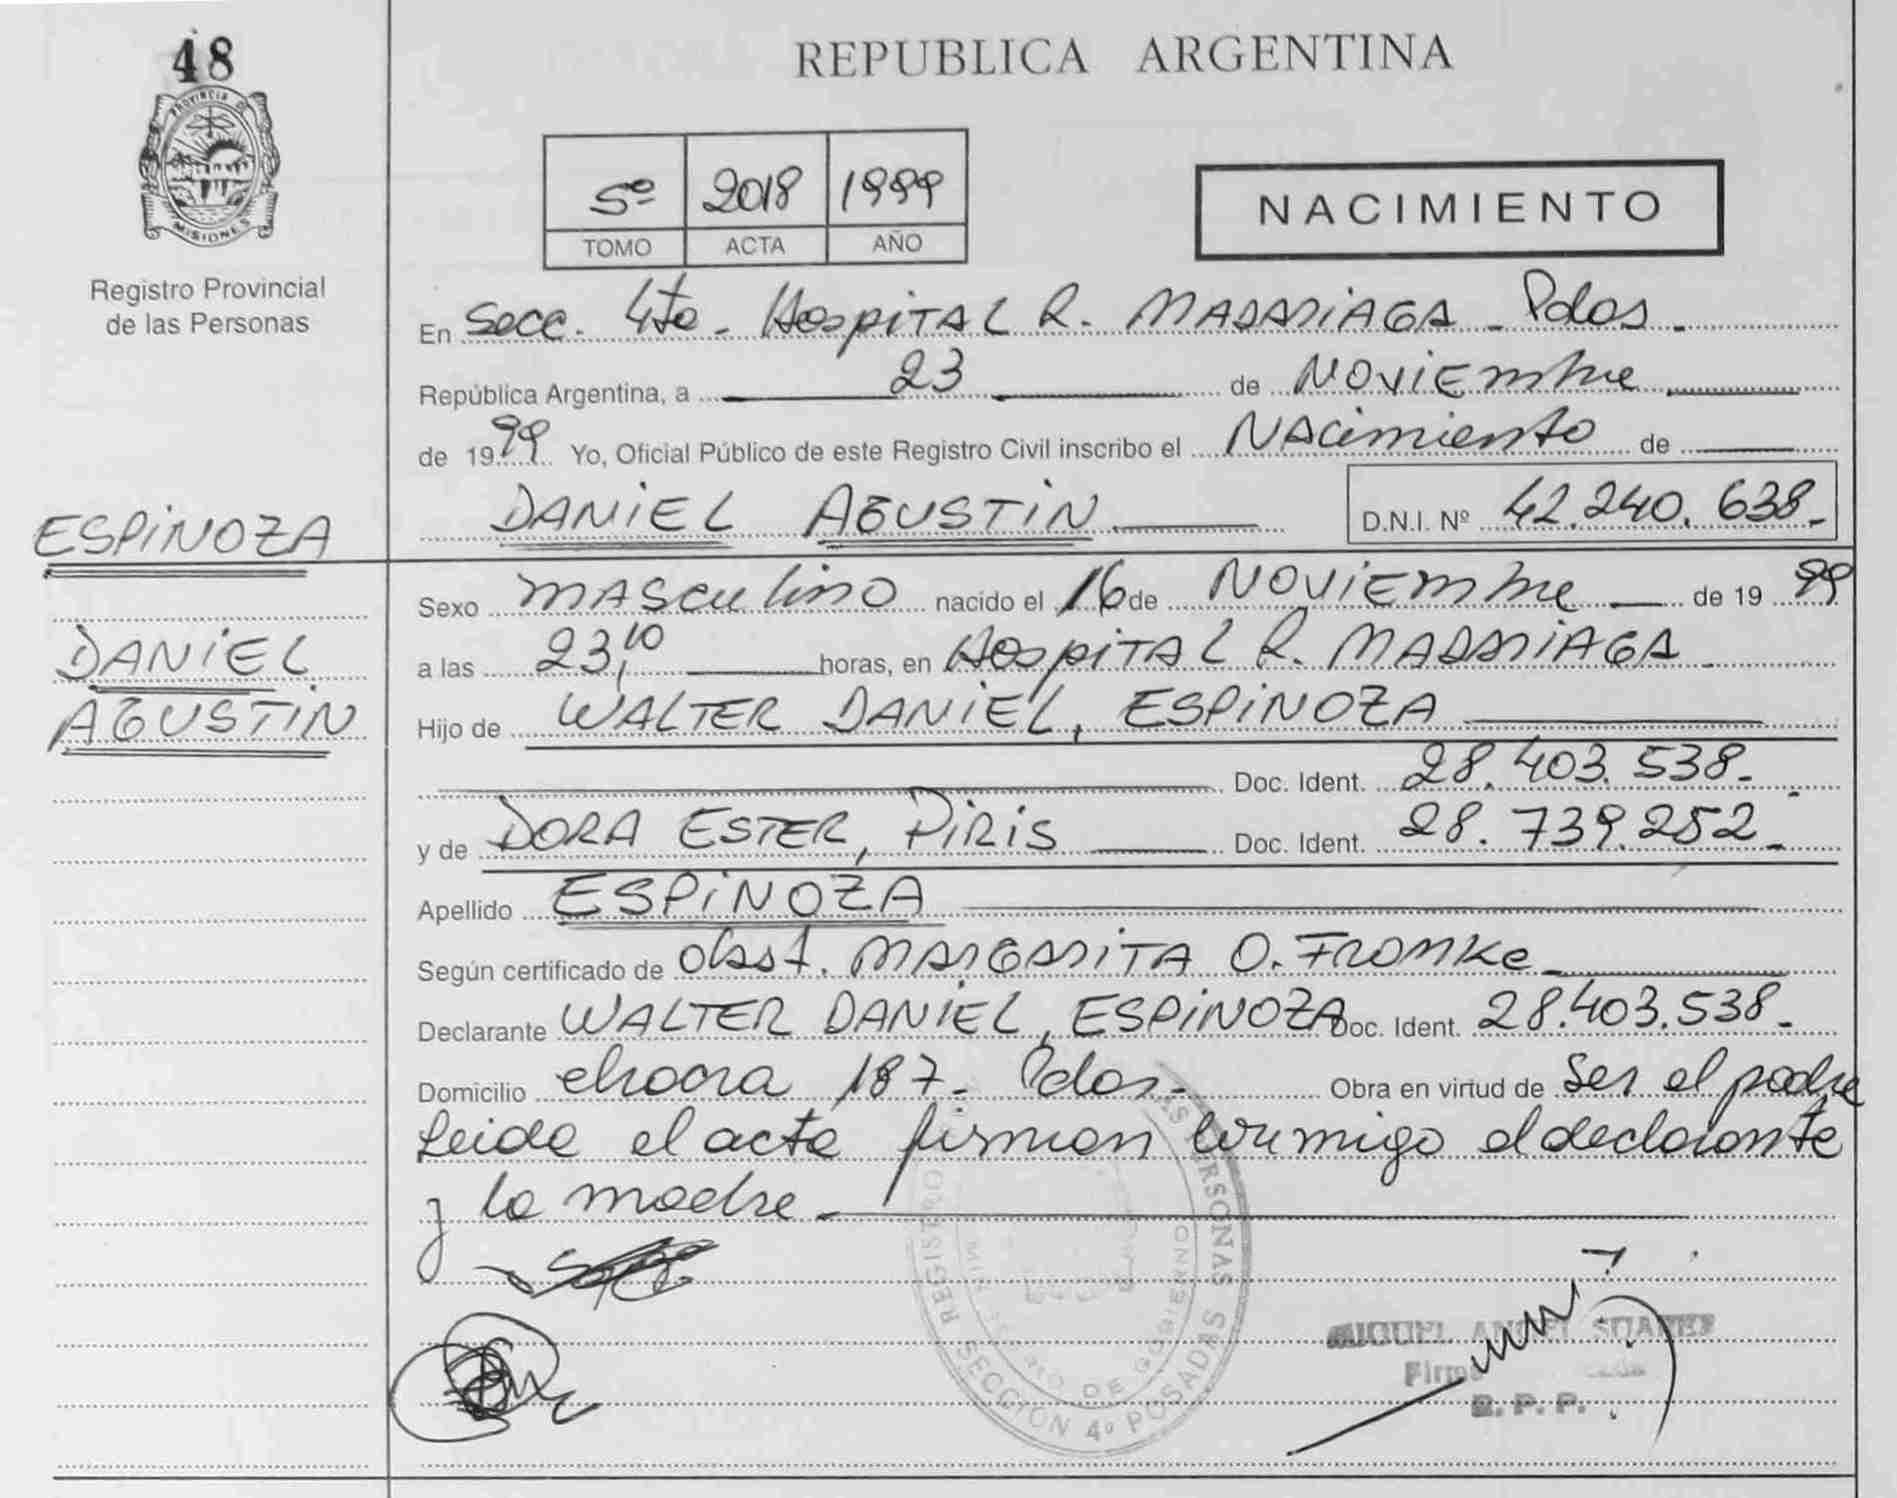 48
PROVINCIA DE
MISIONES
Registro Provincial
de las Personas
REPUBLICA ARGENTINA
5º 2018 1999
TOMO ACTA AÑO
NACIMIENTO
En Secc. 4ta. Hospital R. MADARIAGA - Pdas.
República Argentina, a 23 de Noviembre
de 1999 Yo, Oficial Público de este Registro Civil inscribo el Nacimiento de
DANIEL AGUSTIN D.N.I. Nº 42.240.638.
ESPINOZA
DANIEL
AGUSTIN
Sexo masculino nacido el 16 de Noviembre de 1999
a las 23,10 horas, en Hospital R. MADARIAGA.
Hijo de WALTER DANIEL, ESPINOZA
Doc. Ident. 28.403.538.
y de DORA ESTER, PIRIS Doc. Ident. 28.739.252.
Apellido ESPINOZA
Según certificado de obst. MARGARITA O. FROMKE
Declarante WALTER DANIEL, ESPINOZA Doc. Ident. 28.403.538.
Domicilio chacra 187. Pdas. Obra en virtud de ser el padre
Leida el acta firman conmigo el declarante
y la madre.
REGISTRO PERSONAS
SECCION 4º POSADAS
DE GOBIERNO
MIGUEL ANGEL SUAREZ
Firma
R. P. P.